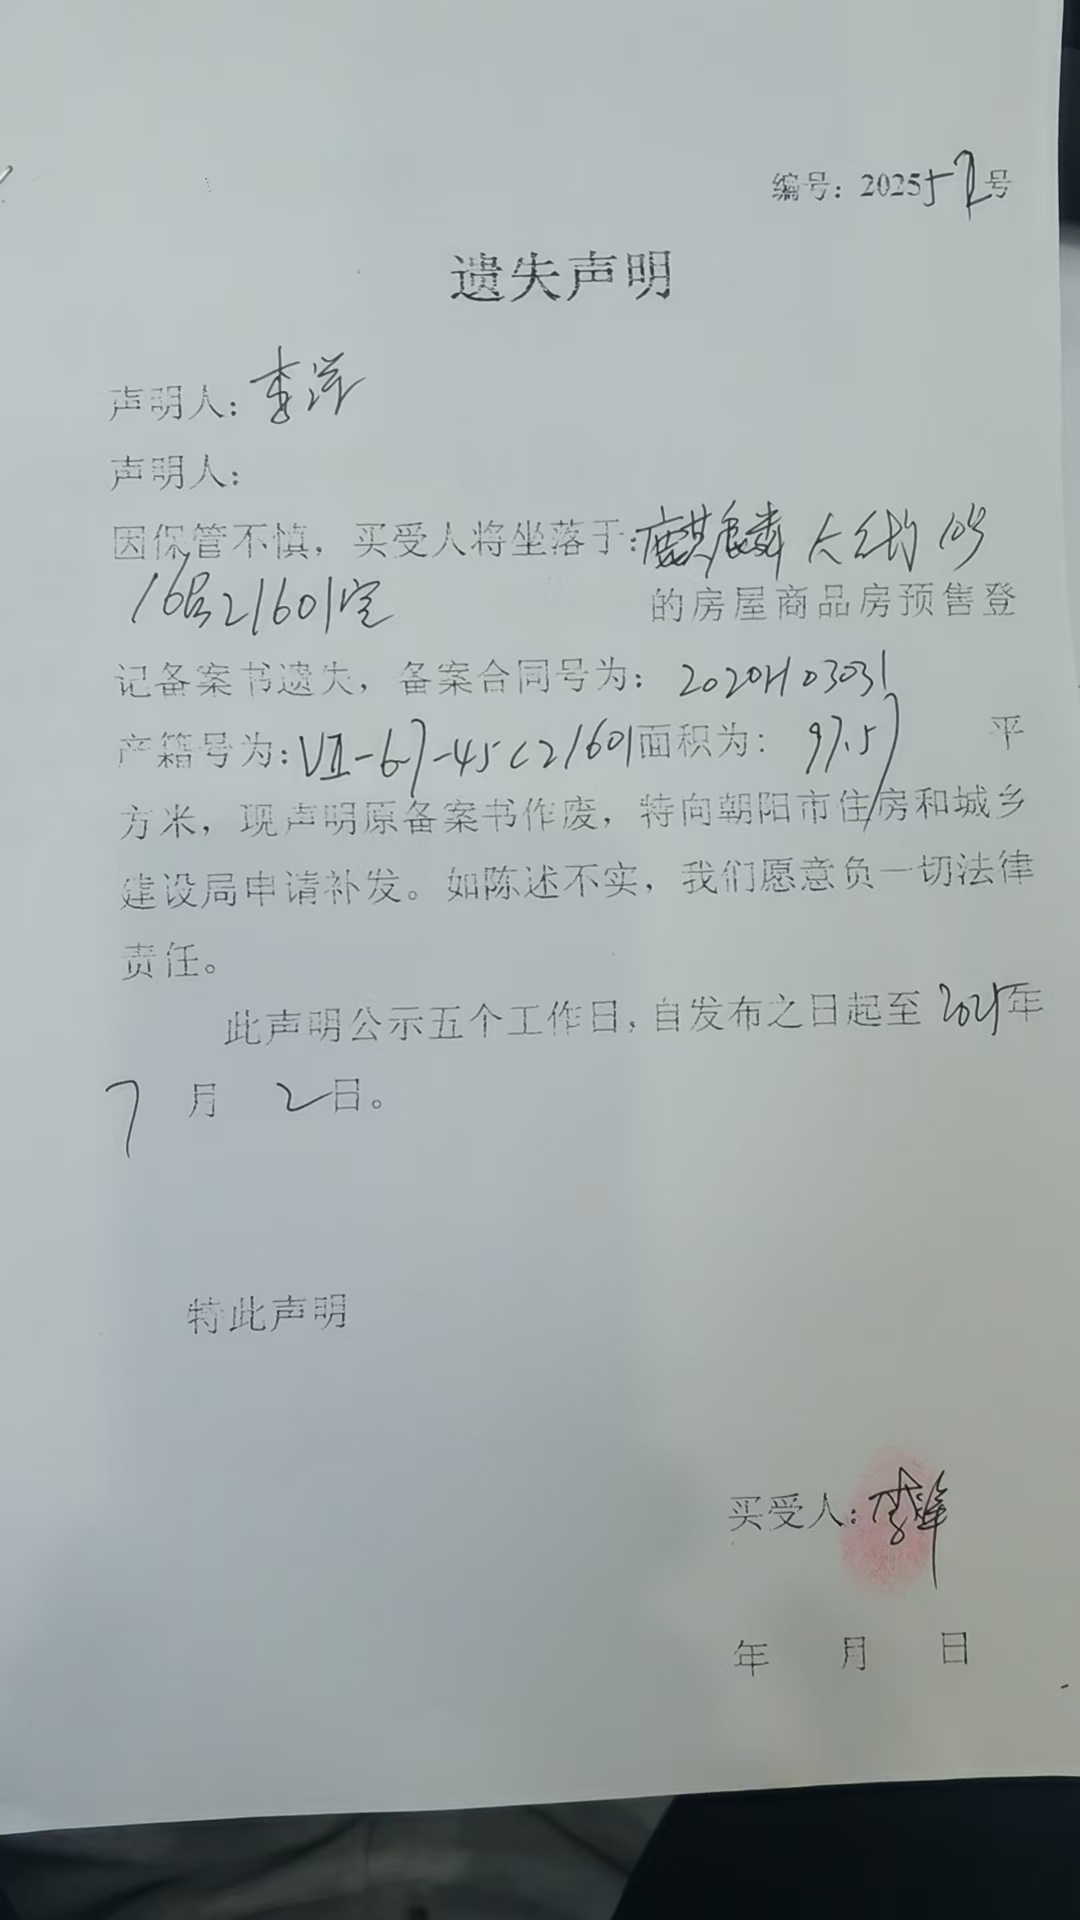 编号：202552号
遗失声明
声明人：李洋
声明人：
因保管不慎，买受人将坐落于：麒麟大街10号
16层21601室 的房屋商品房预售登
记备案书遗失，备案合同号为：2020H03031
产籍号为：VII-67-45C21601面积为：97.57 平
方米，现声明原备案书作废，特向朝阳市住房和城乡
建设局申请补发。如陈述不实，我们愿意负一切法律
责任。
此声明公示五个工作日，自发布之日起至2025年
7月2日。
特此声明
买受人：李洋
年 月 日